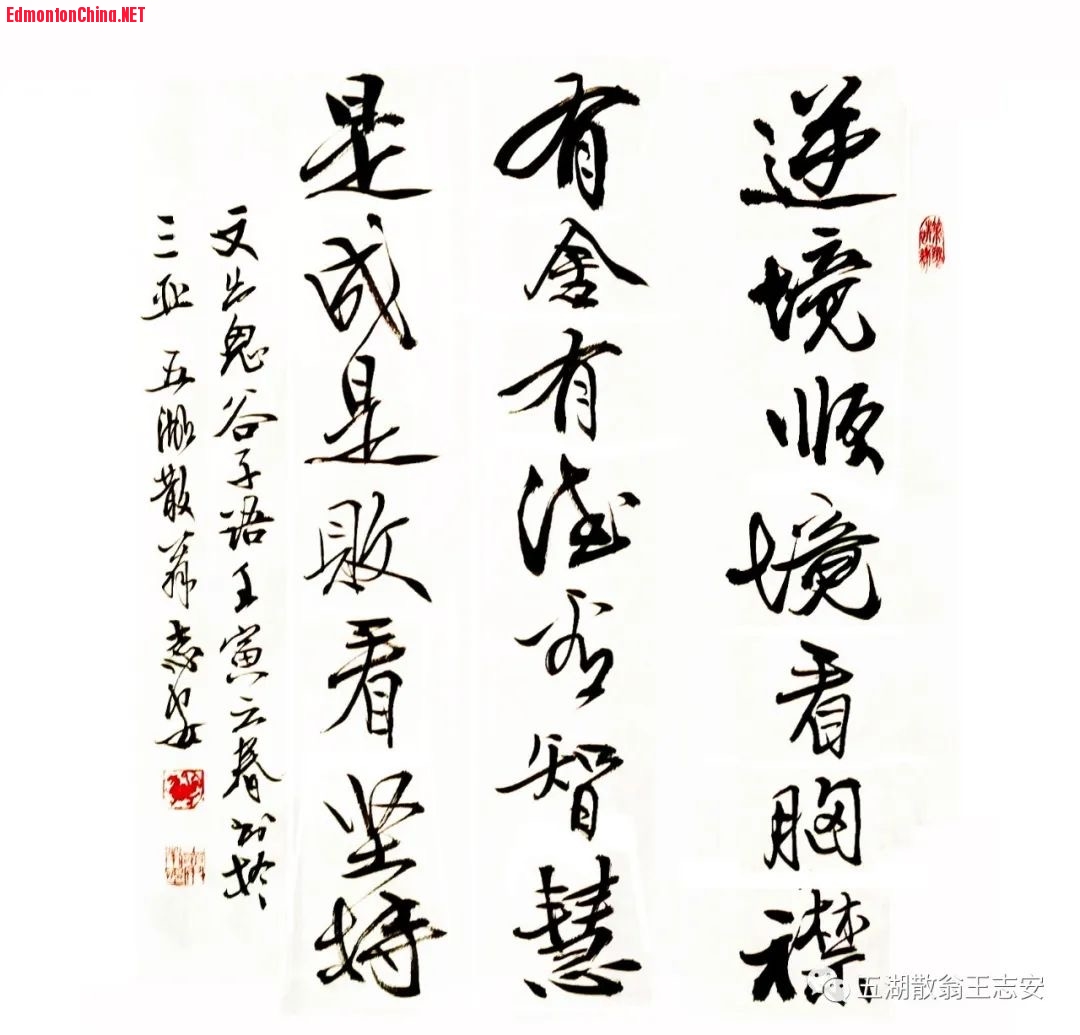 EdmontonChina.NET
逆境顺境看胸襟
有舍有得看智慧
是成是敗看坚持
文出鬼谷子语壬寅立春书於
三亚 五湖散翁志安
五湖散翁王志安